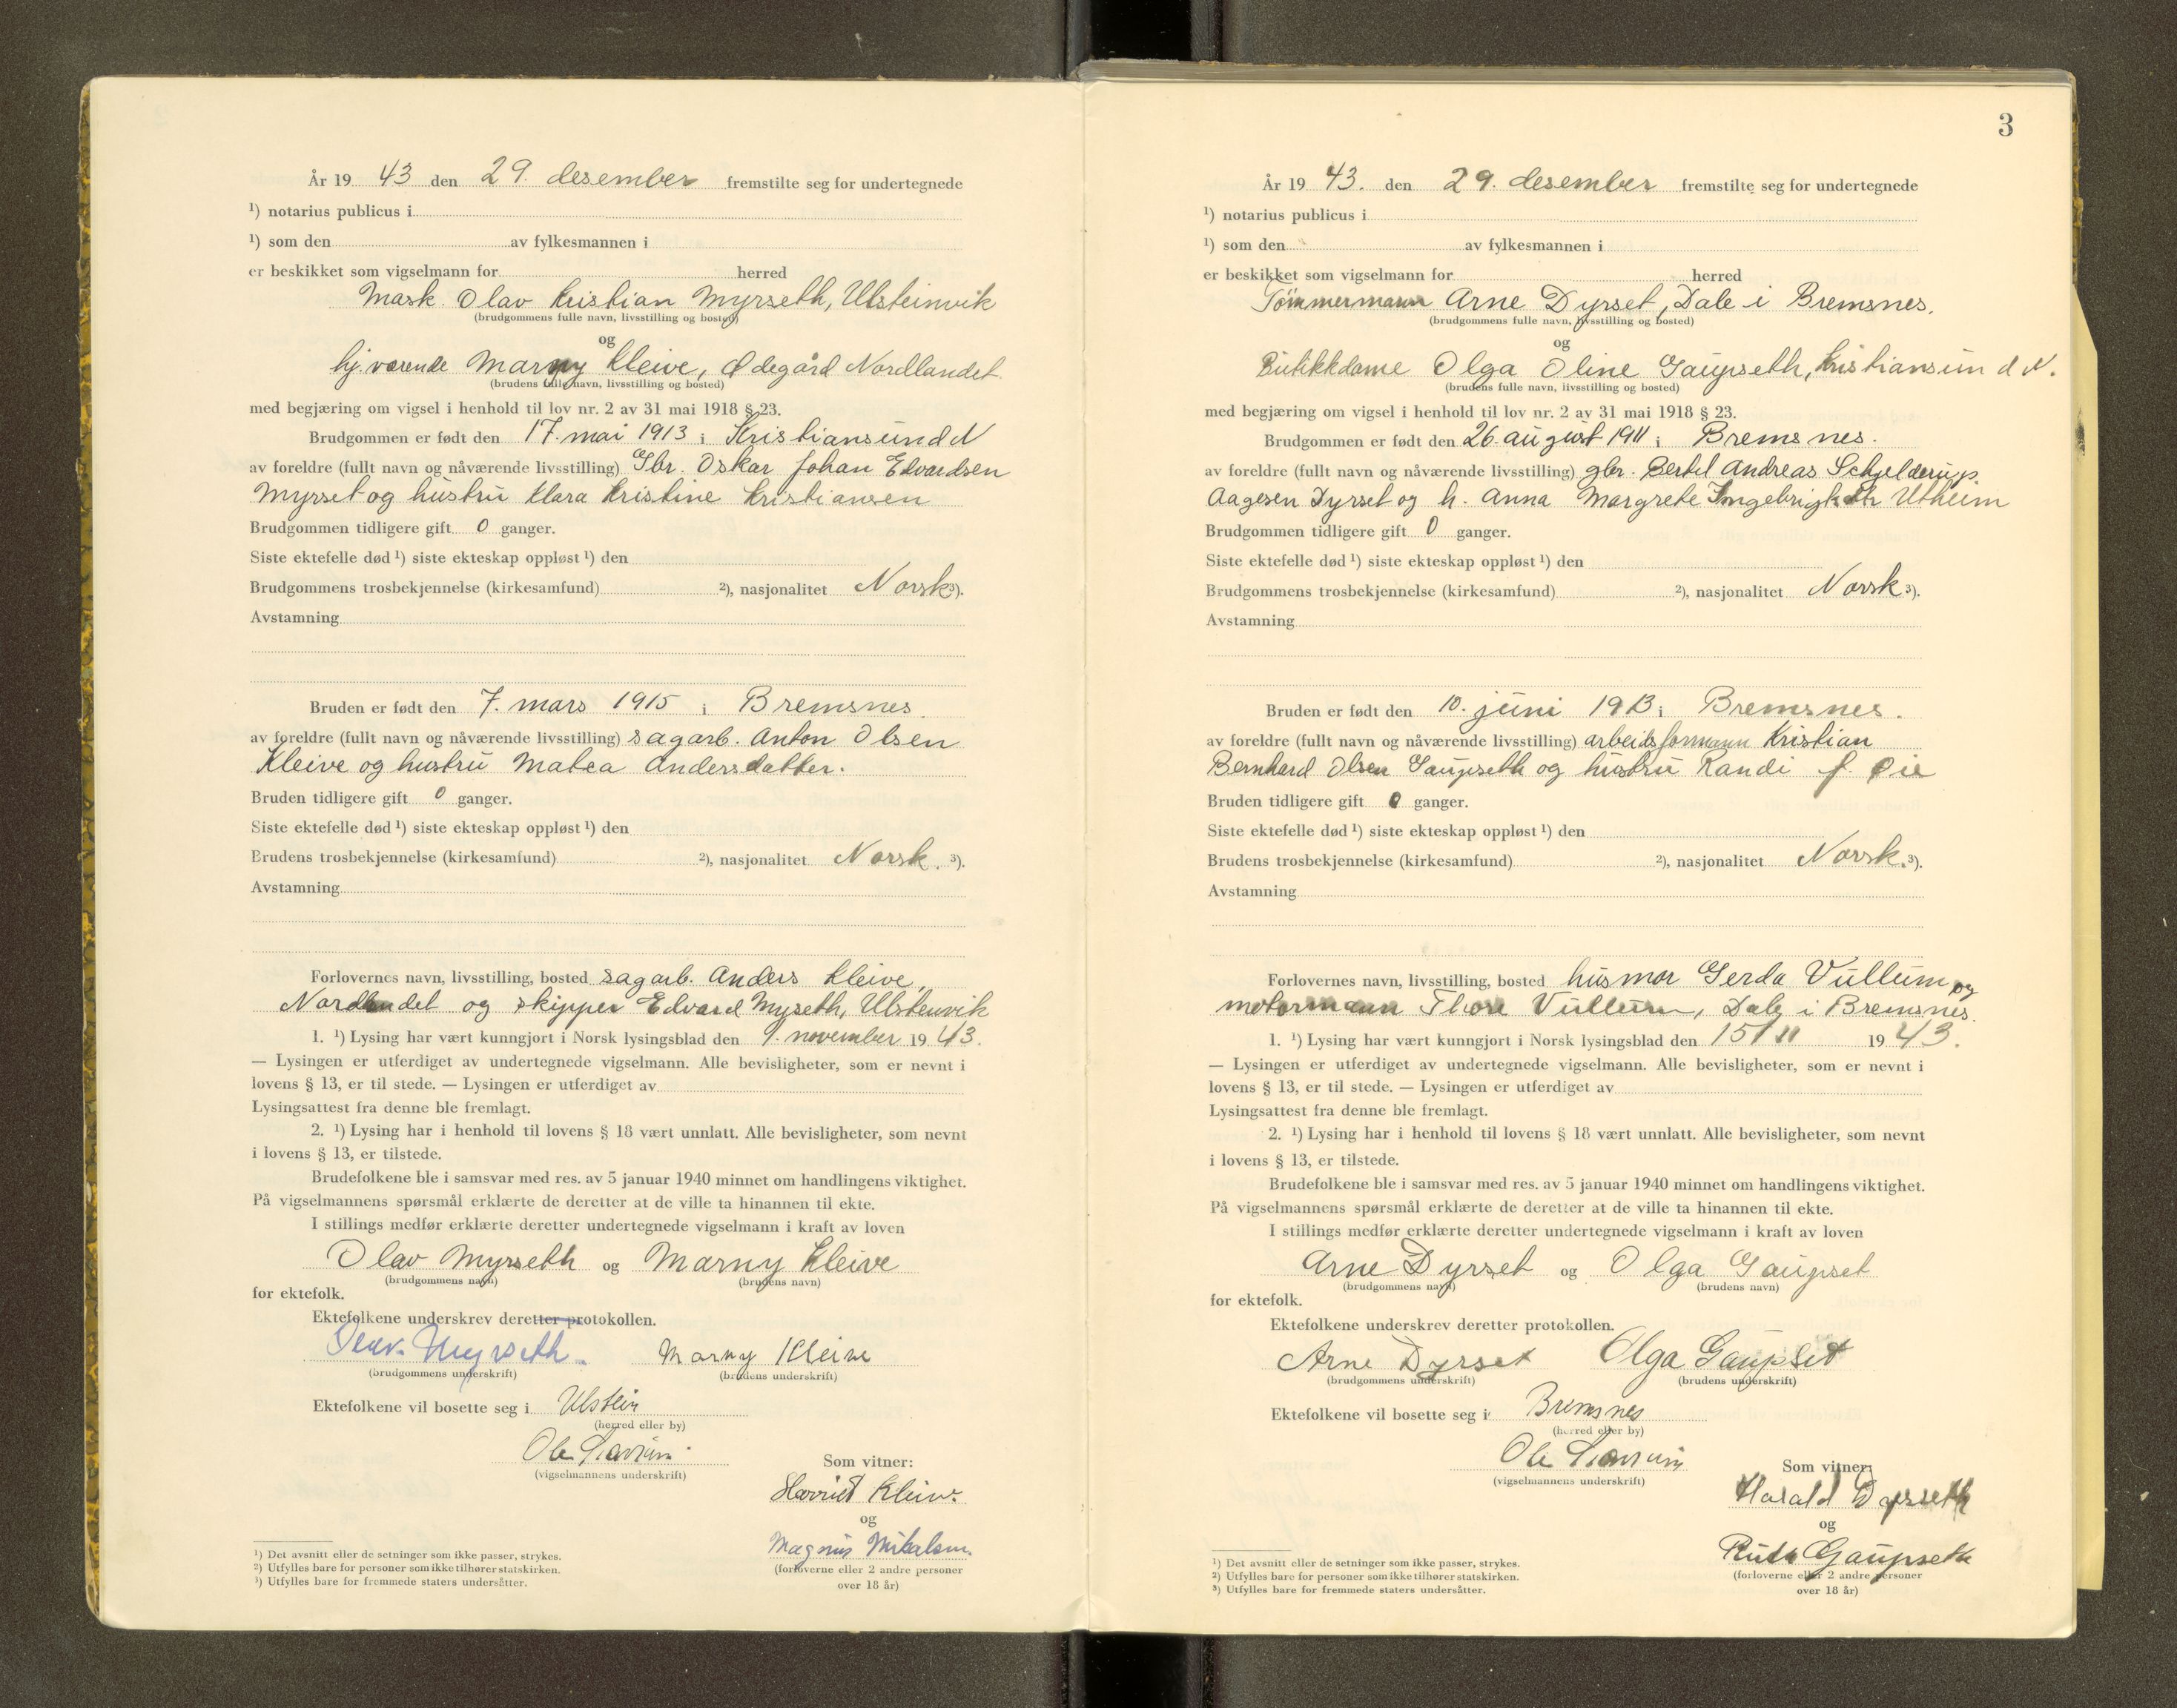 År 19 43 den 29. desember fremstilte seg for undertegnede
¹) notarius publicus i
¹) som den av fylkesmannen i
er beskikket som vigselmann for herred
Mask. Olav Kristian Myrseth, Ulsteinvik
(brudgommens fulle navn, livsstilling og bosted)
og
hj.værende Marny Kleive, Ødegård Nordlandet
(brudens fulle navn, livsstilling og bosted)
med begjæring om vigsel i henhold til lov nr. 2 av 31 mai 1918 § 23.
Brudgommen er født den 17. mai 1913 i Kristiansund N
av foreldre (fullt navn og nåværende livsstilling) Gbr. Oskar Johan Edvardsen
Myrset og hustru Klara Kristine Kristiansen
Brudgommen tidligere gift 0 ganger.
Siste ektefelle død ¹) siste ekteskap oppløst ¹) den
Brudgommens trosbekjennelse (kirkesamfund) ²), nasjonalitet Norsk ³).
Avstamning
Bruden er født den 7. mars 1915 i Bremsnes.
av foreldre (fullt navn og nåværende livsstilling) sagarb. Anton Olsen
Kleive og hustru Matea Andersdatter.
Bruden tidligere gift 0 ganger.
Siste ektefelle død ¹) siste ekteskap oppløst ¹) den
Brudens trosbekjennelse (kirkesamfund) ²), nasjonalitet Norsk. ³).
Avstamning
Forlovernes navn, livsstilling, bosted sagarb. Anders Kleive,
Nordlandet og skipper Edvard Myseth, Ulsteinvik
1. ¹) Lysing har vært kunngjort i Norsk lysingsblad den 9. november 19 43.
— Lysingen er utferdiget av undertegnede vigselmann. Alle bevisligheter, som er nevnt i
lovens § 13, er til stede. — Lysingen er utferdiget av
Lysingsattest fra denne ble fremlagt.
2. ¹) Lysing har i henhold til lovens § 18 vært unnlatt. Alle bevisligheter, som nevnt
i lovens § 13, er tilstede.
Brudefolkene ble i samsvar med res. av 5 januar 1940 minnet om handlingens viktighet.
På vigselmannens spørsmål erklærte de deretter at de ville ta hinannen til ekte.
I stillings medfør erklærte deretter undertegnede vigselmann i kraft av loven
Olav Myrseth og Marny Kleive
(brudgommens navn) (brudens navn)
for ektefolk.
Ektefolkene underskrev deretter protokollen.
Olav. Myrseth. Marny Kleive
(brudgommens underskrift) (brudens underskrift)
Ektefolkene vil bosette seg i Ulstein
(herred eller by)
Ole
(vigselmannens underskrift)
Som vitner:
Harriet Kleive
og
Magnus Mikalsen.
(forloverne eller 2 andre personer
over 18 år)
¹) Det avsnitt eller de setninger som ikke passer, strykes.
²) Utfylles bare for personer som ikke tilhører statskirken.
³) Utfylles bare for fremmede staters undersåtter.
3
År 19 43. den 29. desember fremstilte seg for undertegnede
¹) notarius publicus i
¹) som den av fylkesmannen i
er beskikket som vigselmann for herred
Tømmermann Arne Dyrset, Dale i Bremsnes.
(brudgommens fulle navn, livsstilling og bosted)
og
Butikkdame Olga Oline Gaupseth, Kristiansund N.
(brudens fulle navn, livsstilling og bosted)
med begjæring om vigsel i henhold til lov nr. 2 av 31 mai 1918 § 23.
Brudgommen er født den 26. august 1911 i Bremsnes.
av foreldre (fullt navn og nåværende livsstilling) gbr. Bertel Andreas Schjelderup
Aagesen Dyrset og h. Anna Margrete Utheim
Brudgommen tidligere gift 0 ganger.
Siste ektefelle død ¹) siste ekteskap oppløst ¹) den
Brudgommens trosbekjennelse (kirkesamfund) ²), nasjonalitet Norsk ³).
Avstamning
Bruden er født den 10. juni 1913 i Bremsnes.
av foreldre (fullt navn og nåværende livsstilling) arbeidsformann Kristian
Bernhard Olsen Gaupseth og hustru Randi f. Øie
Bruden tidligere gift 0 ganger.
Siste ektefelle død ¹) siste ekteskap oppløst ¹) den
Brudens trosbekjennelse (kirkesamfund) ²), nasjonalitet Norsk. ³).
Avstamning
Forlovernes navn, livsstilling, bosted husmor Gerda Vullum og
motormann Thore Vullum, Dale i Bremsnes.
1. ¹) Lysing har vært kunngjort i Norsk lysingsblad den 15/11 19 43.
— Lysingen er utferdiget av undertegnede vigselmann. Alle bevisligheter, som er nevnt i
lovens § 13, er til stede. — Lysingen er utferdiget av
Lysingsattest fra denne ble fremlagt.
2. ¹) Lysing har i henhold til lovens § 18 vært unnlatt. Alle bevisligheter, som nevnt
i lovens § 13, er tilstede.
Brudefolkene ble i samsvar med res. av 5 januar 1940 minnet om handlingens viktighet.
På vigselmannens spørsmål erklærte de deretter at de ville ta hinannen til ekte.
I stillings medfør erklærte deretter undertegnede vigselmann i kraft av loven
Arne Dyrset og Olga Gaupset
(brudgommens navn) (brudens navn)
for ektefolk.
Ektefolkene underskrev deretter protokollen.
Arne Dyrset Olga Gaupset
(brudgommens underskrift) (brudens underskrift)
Ektefolkene vil bosette seg i Bremsnes
(herred eller by)
Ole
(vigselmannens underskrift)
Som vitner:
Harald Dyrseth
og
Ruth Gaupseth
(forloverne eller 2 andre personer
over 18 år)
¹) Det avsnitt eller de setninger som ikke passer, strykes.
²) Utfylles bare for personer som ikke tilhører statskirken.
³) Utfylles bare for fremmede staters undersåtter.